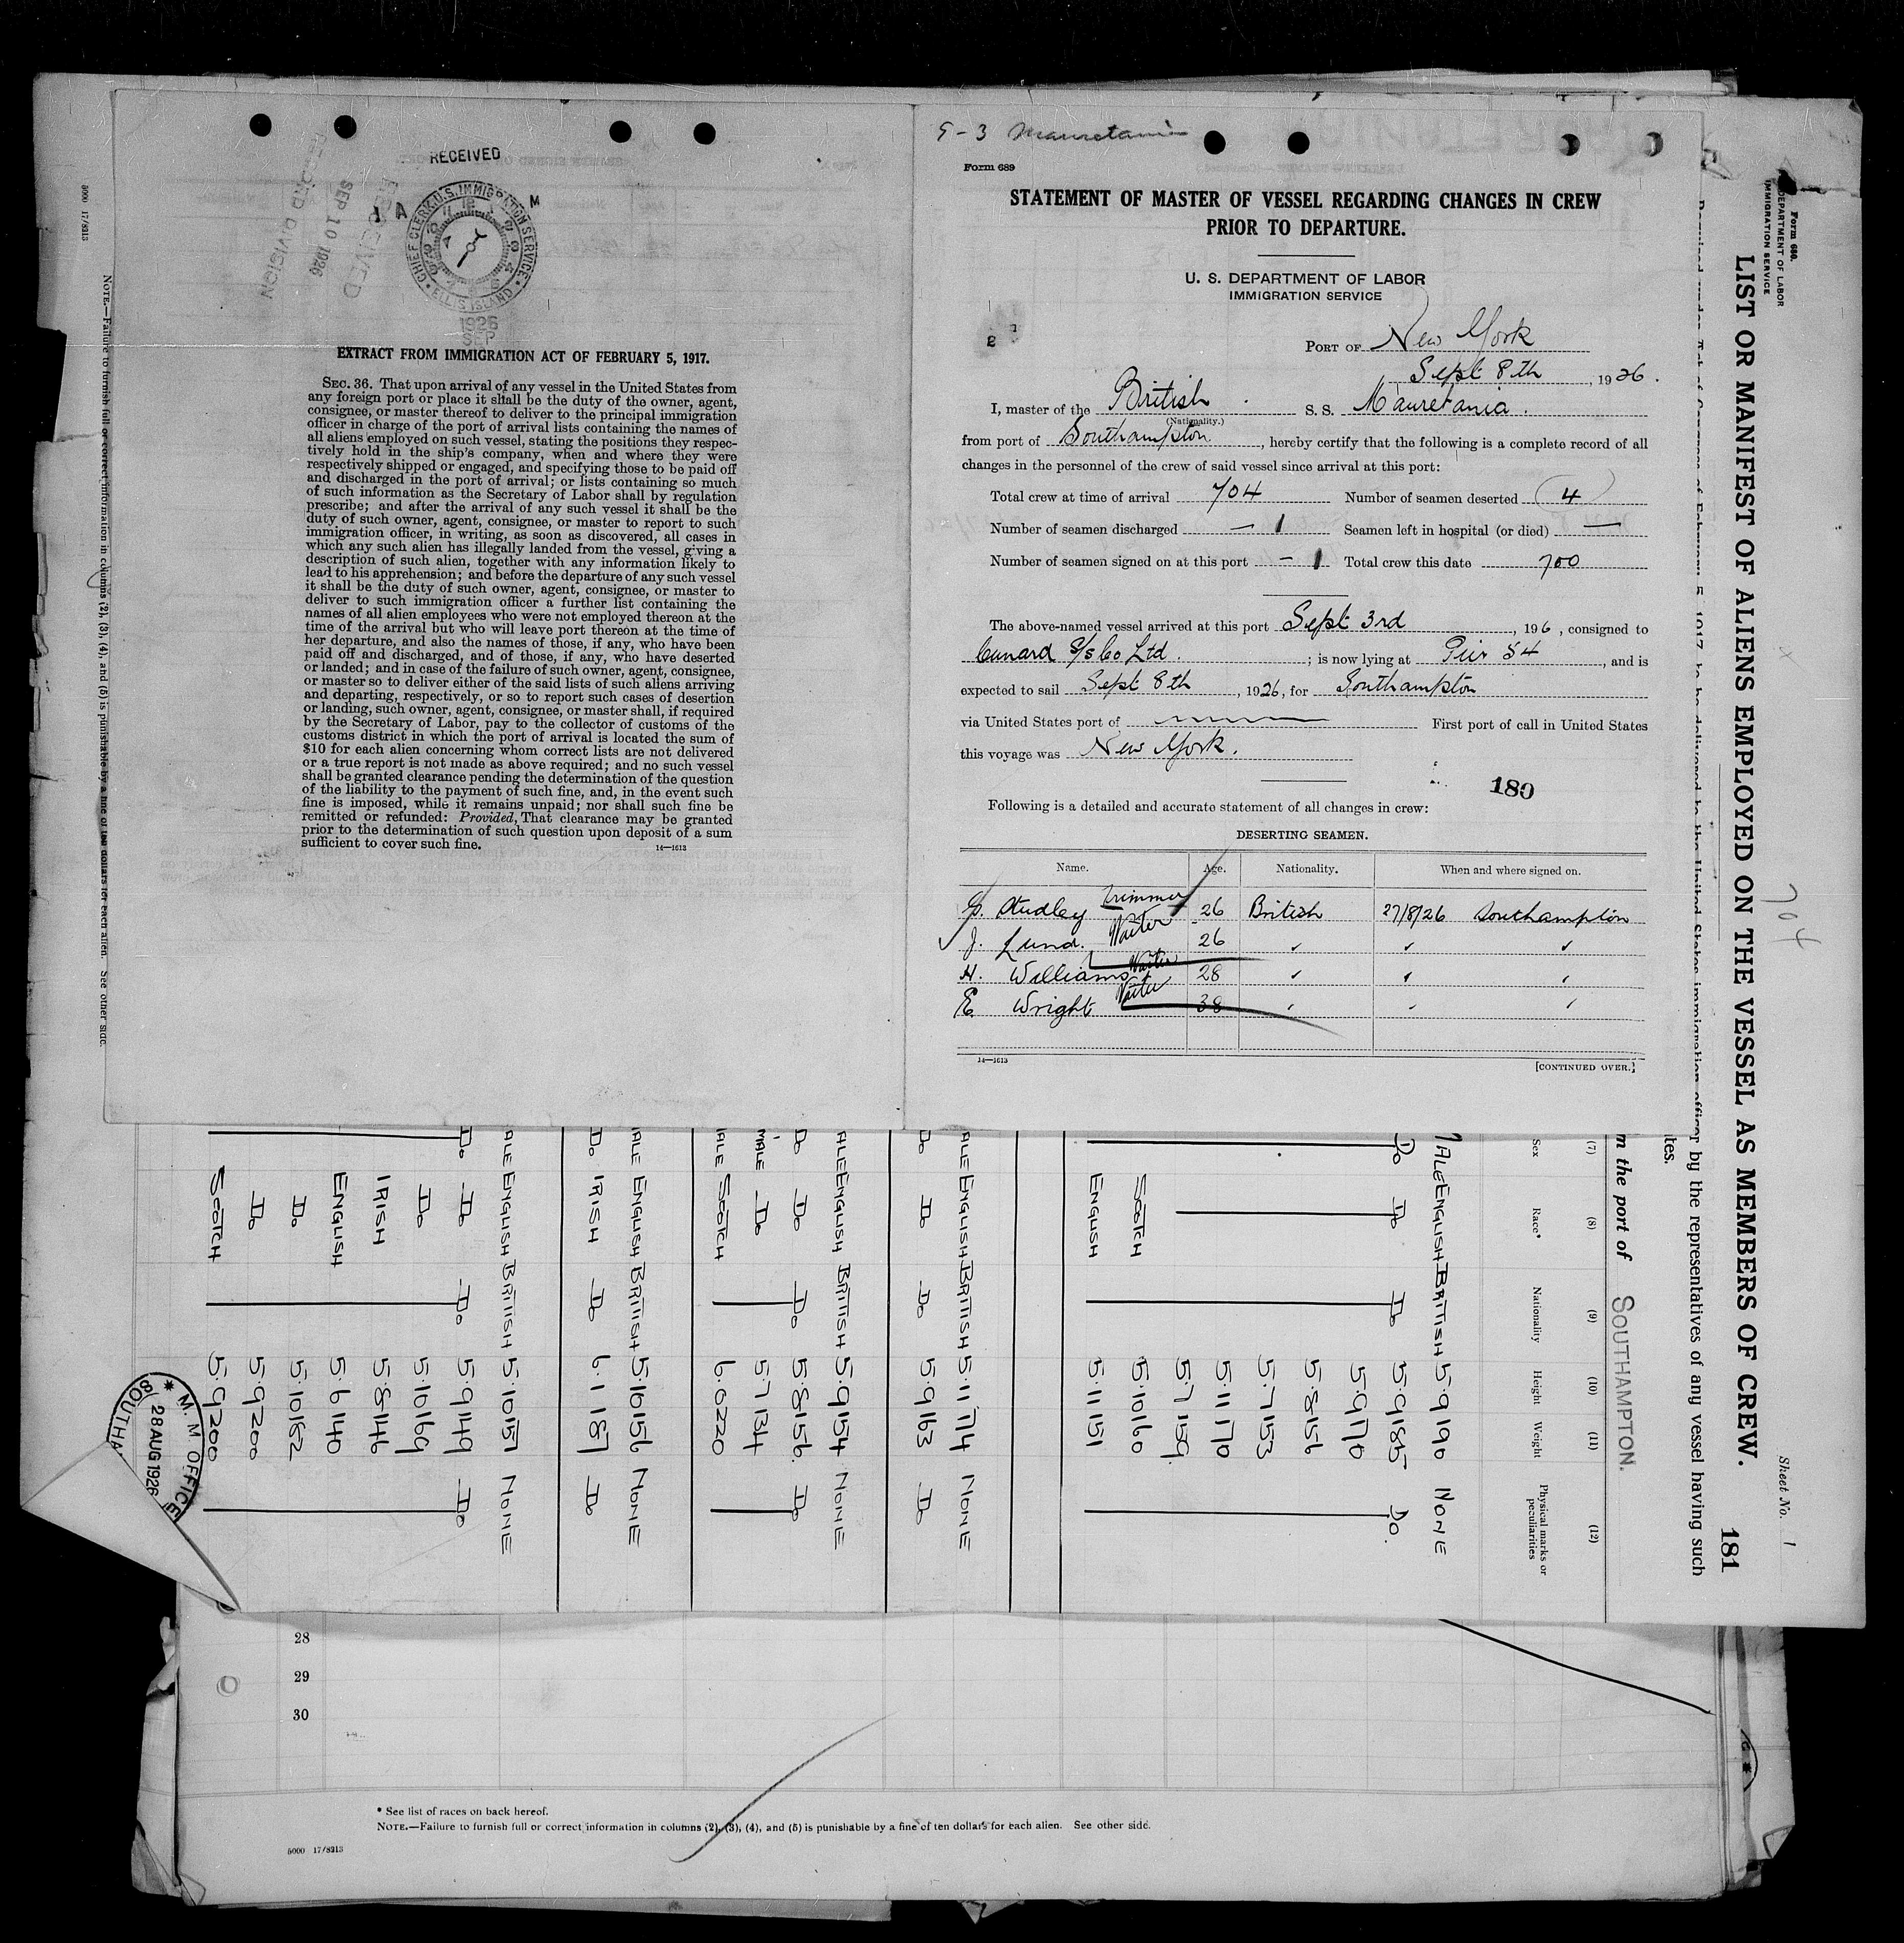 RECEIVED
RECEIVED
SEP 10 1926
RECORD DIVISION
A M
CHIEF CLERK, U.S. IMMIGRATION SERVICE
ELLIS ISLAND
1926
SEP
EXTRACT FROM IMMIGRATION ACT OF FEBRUARY 5, 1917.
SEC. 36. That upon arrival of any vessel in the United States from
any foreign port or place it shall be the duty of the owner, agent,
consignee, or master thereof to deliver to the principal immigration
officer in charge of the port of arrival lists containing the names of
all aliens employed on such vessel, stating the positions they respec-
tively hold in the ship's company, when and where they were
respectively shipped or engaged, and specifying those to be paid off
and discharged in the port of arrival; or lists containing so much
of such information as the Secretary of Labor shall by regulation
prescribe; and after the arrival of any such vessel it shall be the
duty of such owner, agent, consignee, or master to report to such
immigration officer, in writing, as soon as discovered, all cases in
which any such alien has illegally landed from the vessel, giving a
description of such alien, together with any information likely to
lead to his apprehension; and before the departure of any such vessel
it shall be the duty of such owner, agent, consignee, or master to
deliver to such immigration officer a further list containing the
names of all alien employees who were not employed thereon at the
time of the arrival but who will leave port thereon at the time of
her departure, and also the names of those, if any, who have been
paid off and discharged, and of those, if any, who have deserted
or landed; and in case of the failure of such owner, agent, consignee,
or master so to deliver either of the said lists of such aliens arriving
and departing, respectively, or so to report such cases of desertion
or landing, such owner, agent, consignee, or master shall, if required
by the Secretary of Labor, pay to the collector of customs of the
customs district in which the port of arrival is located the sum of
$10 for each alien concerning whom correct lists are not delivered
or a true report is not made as above required; and no such vessel
shall be granted clearance pending the determination of the question
of the liability to the payment of such fine, and, in the event such
fine is imposed, while it remains unpaid; nor shall such fine be
remitted or refunded: Provided, That clearance may be granted
prior to the determination of such question upon deposit of a sum
sufficient to cover such fine.
14—1613
9-3 Mauretania
Form 689
STATEMENT OF MASTER OF VESSEL REGARDING CHANGES IN CREW
PRIOR TO DEPARTURE.
U. S. DEPARTMENT OF LABOR
IMMIGRATION SERVICE
PORT OF New York
Sept 8th, 1926.
I, master of the British S. S. Mauretania.
(Nationality.)
from port of Southampton, hereby certify that the following is a complete record of all
changes in the personnel of the crew of said vessel since arrival at this port:
Total crew at time of arrival 704 Number of seamen deserted 4
Number of seamen discharged — 1 Seamen left in hospital (or died) —
Number of seamen signed on at this port — 1 Total crew this date 700
The above-named vessel arrived at this port Sept 3rd, 196, consigned to
Cunard S/S Co Ltd.; is now lying at Pier 54, and is
expected to sail Sept 8th, 1926, for Southampton
via United States port of First port of call in United States
this voyage was New York.
180
Following is a detailed and accurate statement of all changes in crew:
DESERTING SEAMEN.
Name. Age. Nationality. When and where signed on.
G. Studley trimmer 26 British 27/8/26 Southampton
J. Lund. Waiter 26 " " "
H. Williams Waiter 28 " " "
E. Wright Waiter 38 " " "
14—1613
[CONTINUED OVER.]
Form 680.
DEPARTMENT OF LABOR
IMMIGRATION SERVICE
LIST OR MANIFEST OF ALIENS EMPLOYED ON THE VESSEL AS MEMBERS OF CREW.
Sheet No. 1
181
704
by the representatives of any vessel having such
m the port of SOUTHAMPTON.
(7) (8) (9) (10) (11) (12)
Sex Race* Nationality Height Weight Physical marks or peculiarities
MALE ENGLISH BRITISH 5·9 190 NONE
Do Do Do 5·9 185 Do.
5·9 170
5·8 156
5·7 153
5·11 170
5·7 159
SCOTCH 5·10 160
ENGLISH 5·11 151
ALE ENGLISH BRITISH 5·11 174 NONE
Do Do Do 5·9 163 Do
ALE ENGLISH BRITISH 5·9 154 NONE
Do Do Do 5·8 156 Do
MALE Do 5·7 134
ALE SCOTCH 6·0 220
ALE ENGLISH BRITISH 5·10 156 NONE
Do IRISH Do 6·1 187 Do
ALE ENGLISH BRITISH 5·10 151 NONE
Do Do Do 5·9 149 Do
Do 5·10 169
IRISH 5·8 146
ENGLISH 5·6 140
Do 5·10 152
Do 5·9 200
SCOTCH 5·9 200
M. M. OFFICE
28 AUG 1926
SOUTHA
NOTE.—Failure to furnish full or correct information in columns (2), (3), (4), and (5) is punishable by a fine of ten dollars for each alien. See other side.
5000 17/8213
28
29
30
* See list of races on back hereof.
NOTE.—Failure to furnish full or correct information in columns (2), (3), (4), and (5) is punishable by a fine of ten dollars for each alien. See other side.
5000 17/8213